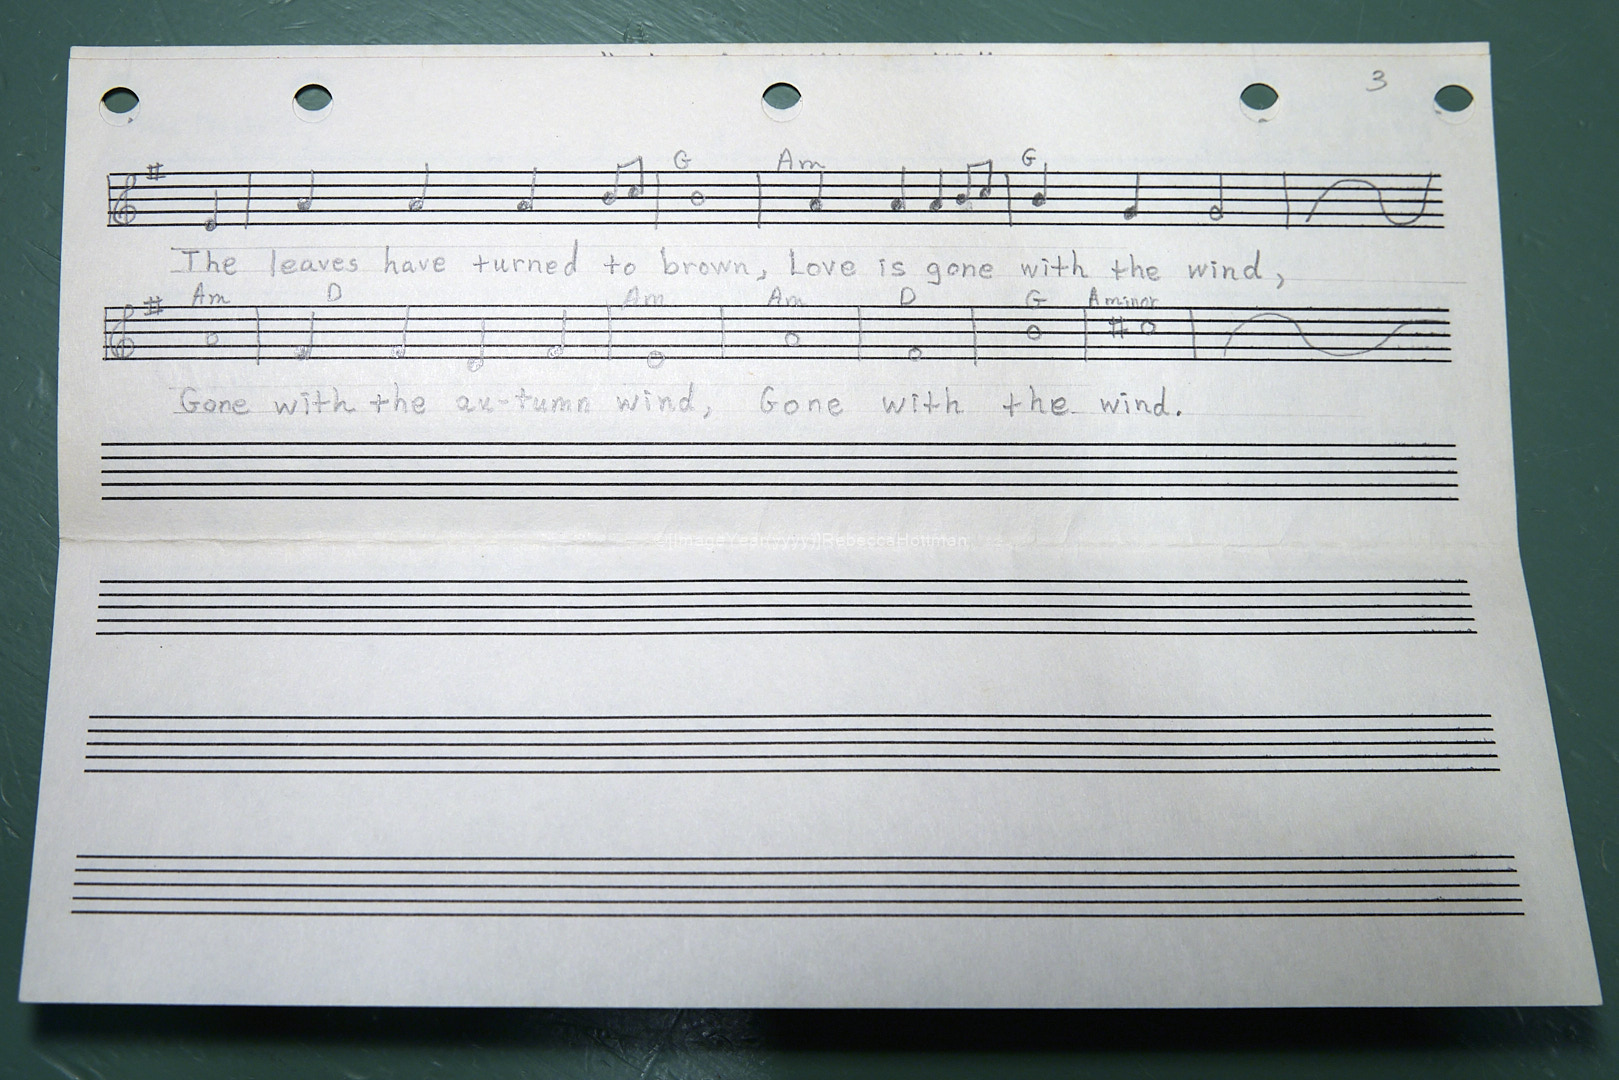 3
G Am G
The leaves have turned to brown, Love is gone with the wind,
Am D Am Am D G Aminor
Gone with the au-tumn wind, Gone with the wind.
©[[ImageYear(yyyy)]]RebeccaHoffman